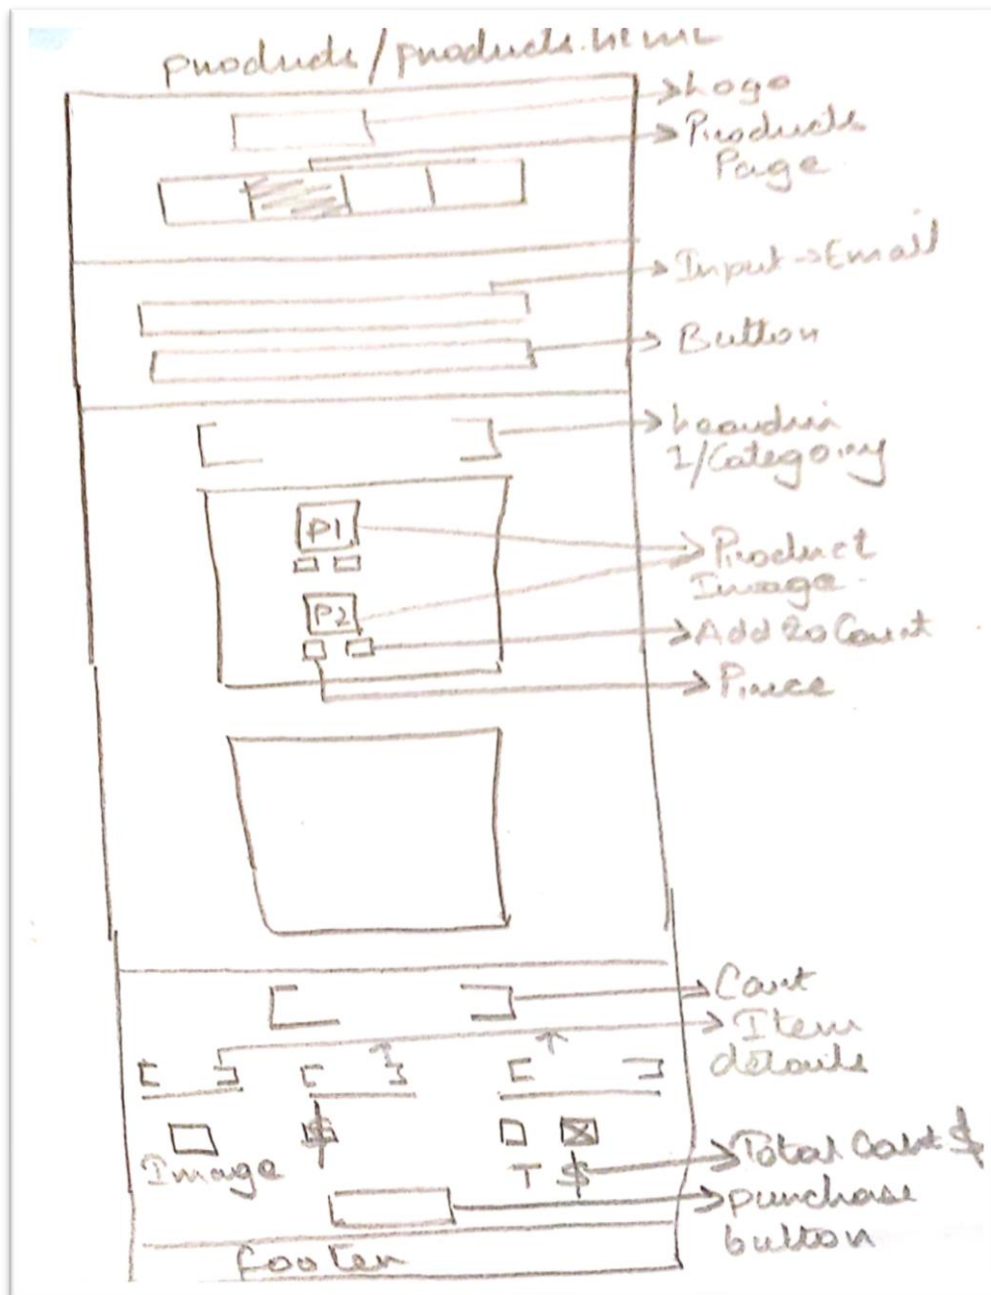 products/products.html
Logo
Products
Page
Input → Email
Button
1/Category
P1
P2
Product
Image
Add to Cart
Price
Cart
Item
details
Image
$
T $
Total Cart $
purchase
button
footer